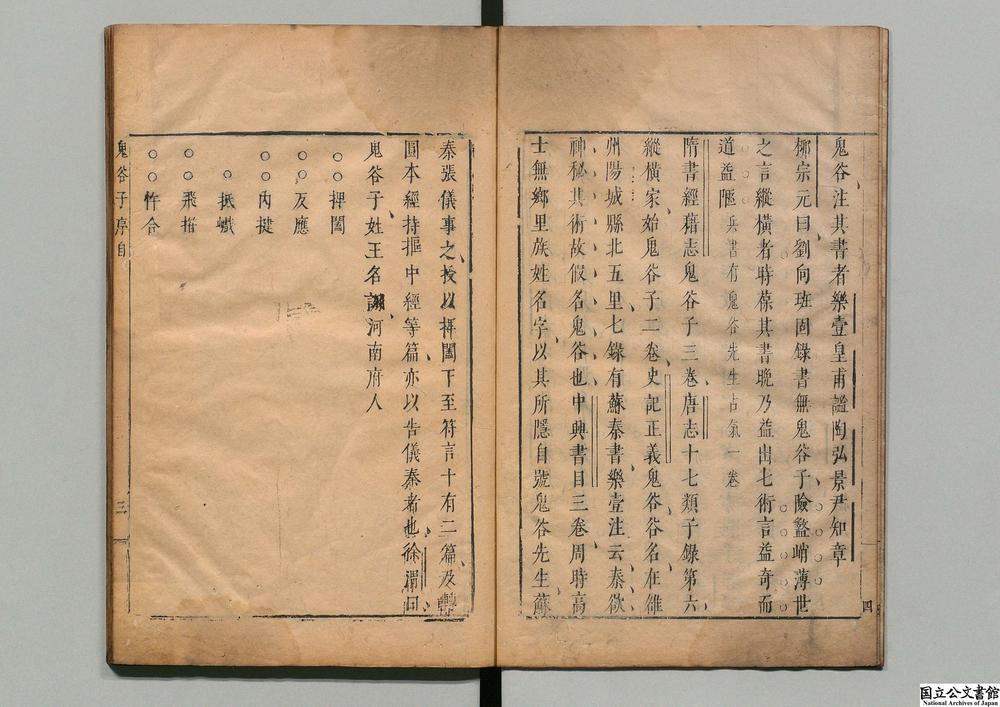 鬼谷注其書者樂壹皇甫謐陶弘景尹知章
柳宗元曰劉向班固錄書無鬼谷子險盭峭薄世
之言縱橫者時葆其書晚乃益出七術言益奇而
道益陿兵書有鬼谷先生占氣一卷
隋書經藉志鬼谷子三卷唐志十七類子錄第六
縱橫家始鬼谷子二卷史記正義鬼谷谷名在雒
州陽城縣北五里七錄有蘇秦書樂壹注云秦欲
神秘其術故假名鬼谷也中興書目三卷周時高
士無鄉里族姓名字以其所隱自號鬼谷先生蘇
四
秦張儀事之授以捭闔下至符言十有二篇及轉
圓本經持摳中經等篇亦以告儀秦者也徐渭曰
鬼谷子姓王名詡河南府人
○○捭闔
○○反應
○○內揵
○抵巇
○○飛箝
○○忤合
鬼谷子序自
三
国立公文書館
National Archives of Japan